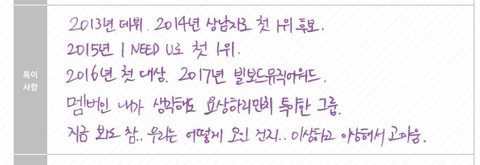 2013년 데뷔. 2014년 상남자로 첫 1위 후보.
2015년 I NEED U로 첫 1위.
특이
사항
2016년 첫 대상, 2017년 빌보드뮤직어워드.
멤버인 내가 생각해도 요상하리만치 특이한 그룹.
지금 봐도 참.. 우리는 어떻게 모인 건지.. 이상하고 이상해서 고마움.